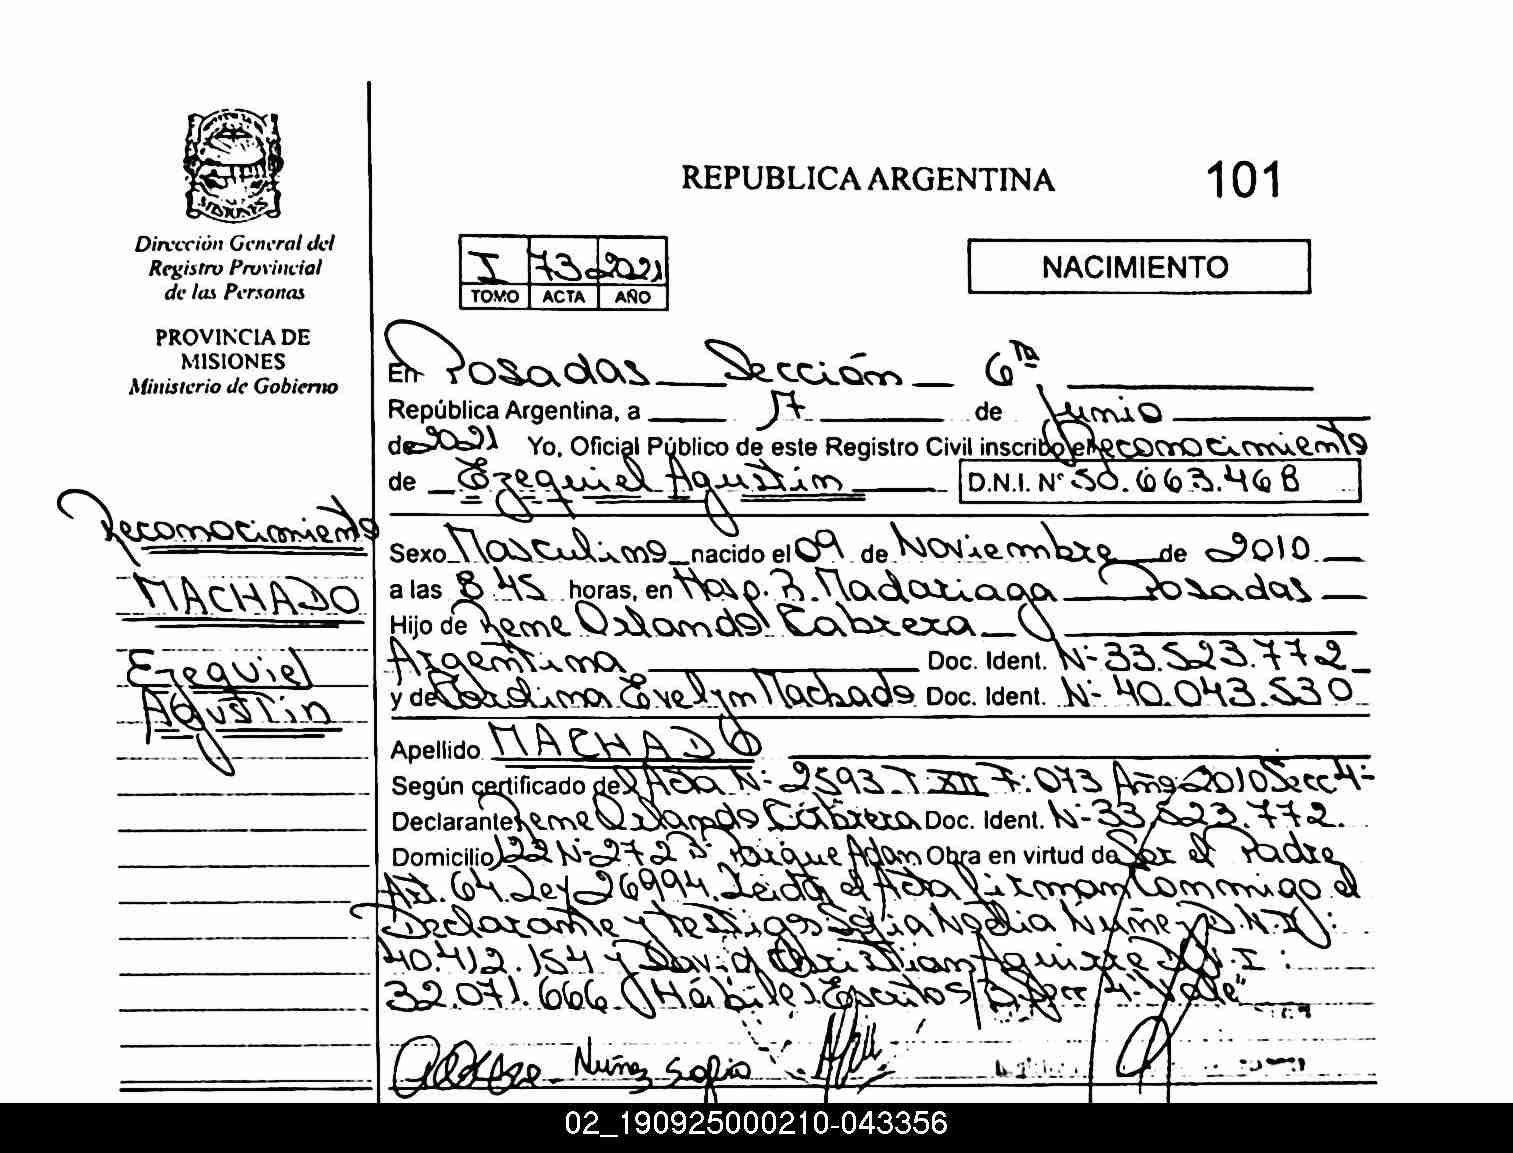 REPUBLICA ARGENTINA
101
MISIONES
Dirección General del
Registro Provincial
de las Personas
PROVINCIA DE
MISIONES
Ministerio de Gobierno
I 73 2021
TOMO ACTA AÑO
NACIMIENTO
En Posadas Sección 6ta
República Argentina, a 17 de Junio
de 2021 Yo, Oficial Público de este Registro Civil inscribo el Reconocimiento
de Ezequiel Agustin D.N.I. Nº 50.663.468
Reconocimiento
MACHADO
Ezequiel
Agustin
Sexo Masculino nacido el 09 de Noviembre de 2010
a las 8.45 horas, en Hosp. R. Madariaga Posadas
Hijo de Rene Orlando Cabrera
Argentina Doc. Ident. Nº 33.523.772
y de Carolina Evelyn Machado Doc. Ident. Nº 40.043.530
Apellido MACHADO
Según certificado del Acta Nº 2593 T XII F: 073 Año 2010 Secc 4º
Declarante Rene Orlando Cabrera Doc. Ident. Nº 33.523.772.
Domicilio 122 Nº 272 Bº Parique Adam Obra en virtud de Ser el Padre
Art. 64 Ley 26994. Leida el Acta firman Conmigo el
Declarante y testigos Sofia Noelia Nuñez D.N.I:
40.412.154 y David Christian Aguirre D.N.I:
32.071.666 Hábiles Escritos Secc 4º Vale"
Nuñez Sofia
02_190925000210-043356